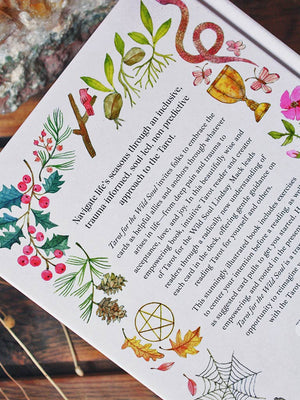 Navigate life's seasons through an inclusive,
trauma informed, soul led, non predictive
approach to the Tarot.
Tarot for the Wild Soul invites folks to embrace the
cards as helpful allies and anchors through whatever
arises in life—from deep pain and trauma to
acceptance, love, and joy. In this beautifully wise and
empowering book, intuitive Tarot reader and creator
of Tarot for the Wild Soul Lindsay Mack leads
readers through a radically new understanding of
each card in the deck, offering gentle guidance on
reading Tarot for yourself and others.
This stunningly illustrated book includes exercises
to center your intention before a reading, as w
as suggested card pulls to get you started
empowering, and restorative in the
Tarot for the Wild Soul is a tra
opportunity to reimagine
with the Tarot.